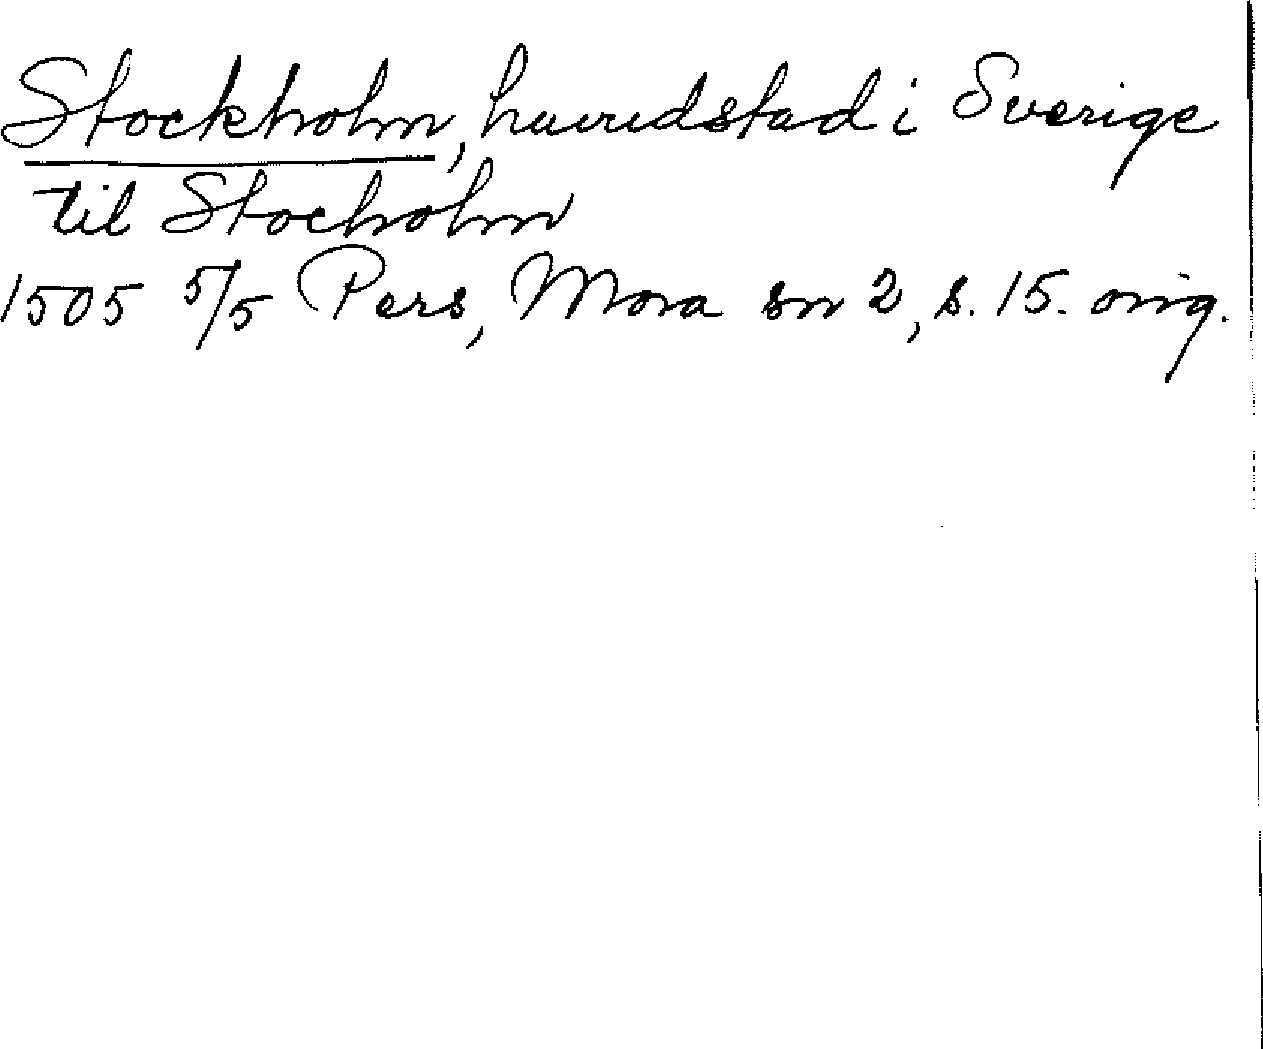 Stockholm, huvudstad i Sverige
til Stocholm
1505 5/5 Pers, Mora sn 2, s. 15. orig.